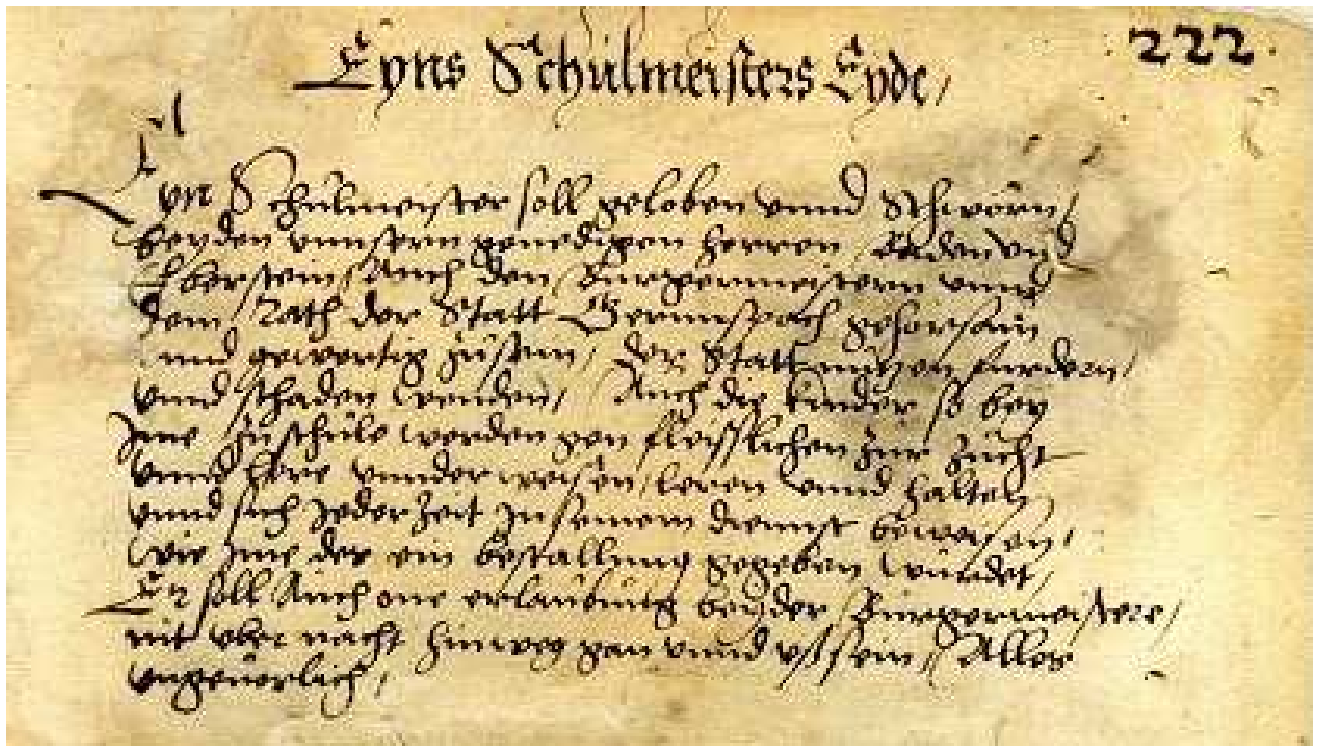 222
Eyns Schulmeisters Eyde,
Eyn Schulmeister soll geloben vnnd Schwörn,
beyden vnnsern genedigen herren, Baden vnd
Eberstein, Auch den Burgermeistern vnnd
dem Rath der Statt Gernnspach gehorsam
vnnd gewertig zusein, der Statt nutzen furdern,
vnnd schaden wenden, Auch die kinder so bey
Jme zuschule werden gen fleisslichen zur zucht
vnnd here vnnderweisen, leren vnnd halten
vnnd sich jeder zeit jn seinem dienst beweisen,
wie jme der ein bestallung gegeben wurdet,
Er soll Auch one erlaubung beyder Burgermeistere,
nit vber nacht hinweg gan vnnd vssein, Alles
vngeuerlich,